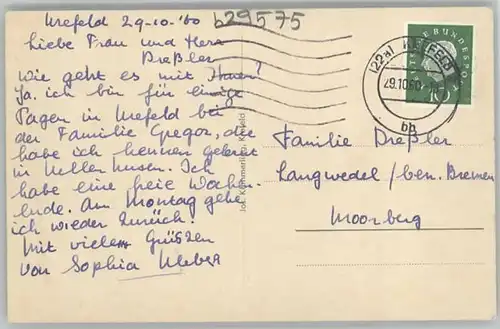 Krefeld 29-10-'60
b29575
liebe Frau und Herr
Dreßler
Wie geht es mit Ihnen?
Ja, ich bin für einige
Tagen in Krefeld bei
der Familie Gregor, die
habe ich kennen gelernt
in Ich
habe eine freie Wochen-
ende. Am Montag gehe
ich wieder zurück.
Mit vielen Grüszen
von Sophia Weber
(22a) KREFELD
29.10.60
bb
10
DEUTSCHE BUNDESPOST
Familie Dreßler
Langwedel/ben. Bremen
Moorberg
Krefeld